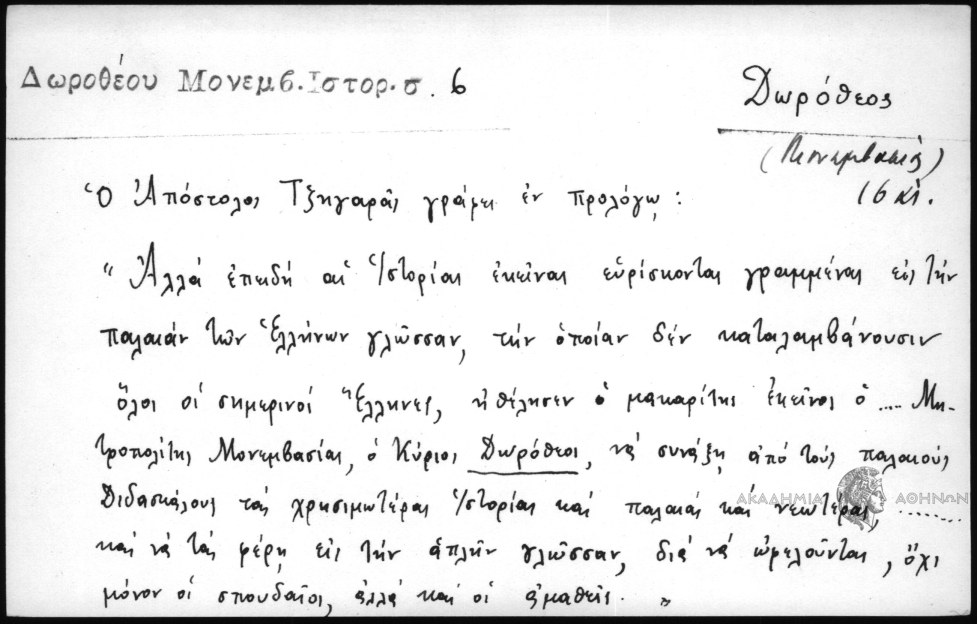 Δωροθέου Μονεμβ. Ιστορ. σ. 6
Δωρόθεος
(Μονεμβασίας)
16 αἰ.
Ὁ Ἀπόστολος Τζηγαρᾶς γράφει ἐν προλόγῳ :
"Ἀλλά ἐπειδή αἱ Ἱστορίαι ἐκεῖναι εὑρίσκονται γραμμέναι εἰς τήν
παλαιάν τῶν Ἑλλήνων γλῶσσαν, τήν ὁποίαν δέν καταλαμβάνουσιν
ὅλοι οἱ σημερινοί Ἕλληνες, ἠθέλησεν ὁ μακαρίτης ἐκεῖνος ὁ .... Μη-
τροπολίτης Μονεμβασίας, ὁ Κύριος Δωρόθεος, νά συνάξῃ ἀπό τούς παλαιούς
Διδασκάλους τάς χρησιμωτέρας Ἱστορίας καί παλαιάς καί νεωτέρας .......
καί νά τάς φέρῃ εἰς τήν ἁπλῆν γλῶσσαν, διά νά ὠφελοῦνται, ὄχι
μόνον οἱ σπουδαῖοι, ἀλλά καί οἱ ἀμαθεῖς. "
ΑΚΑΔΗΜΙΑ ΑΘΗΝΩΝ